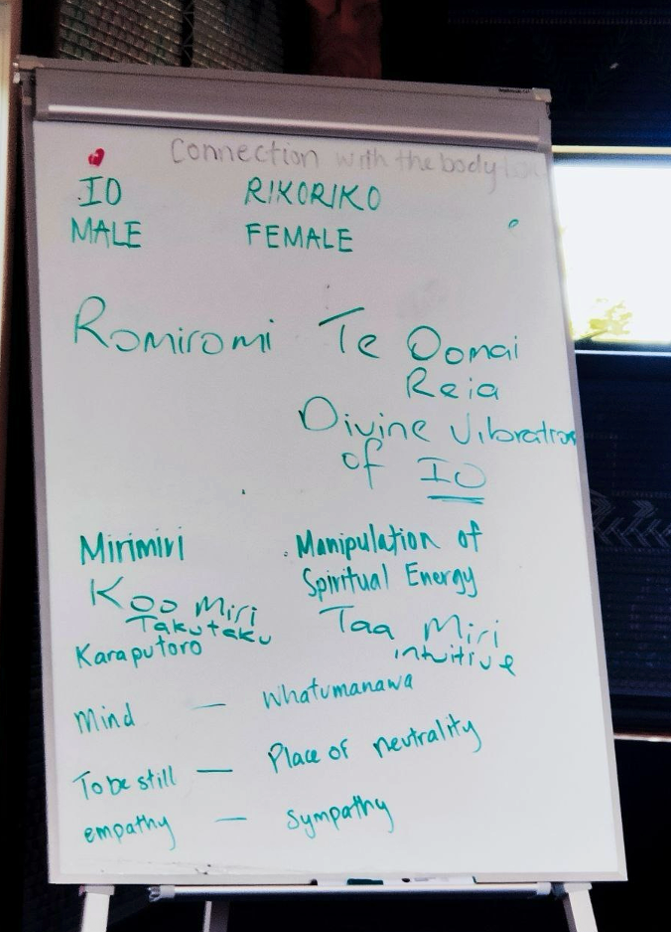 Connection with the body
IO RIKORIKO
MALE FEMALE
Romiromi Te Oomai
Reia
Divine Vibration
of IO
Mirimiri Manipulation of
Spiritual Energy
Koo Miri Taa Miri
Takutaku intuitive
Karaputoro
Mind — Whatumanawa
To be still — Place of neutrality
empathy — sympathy